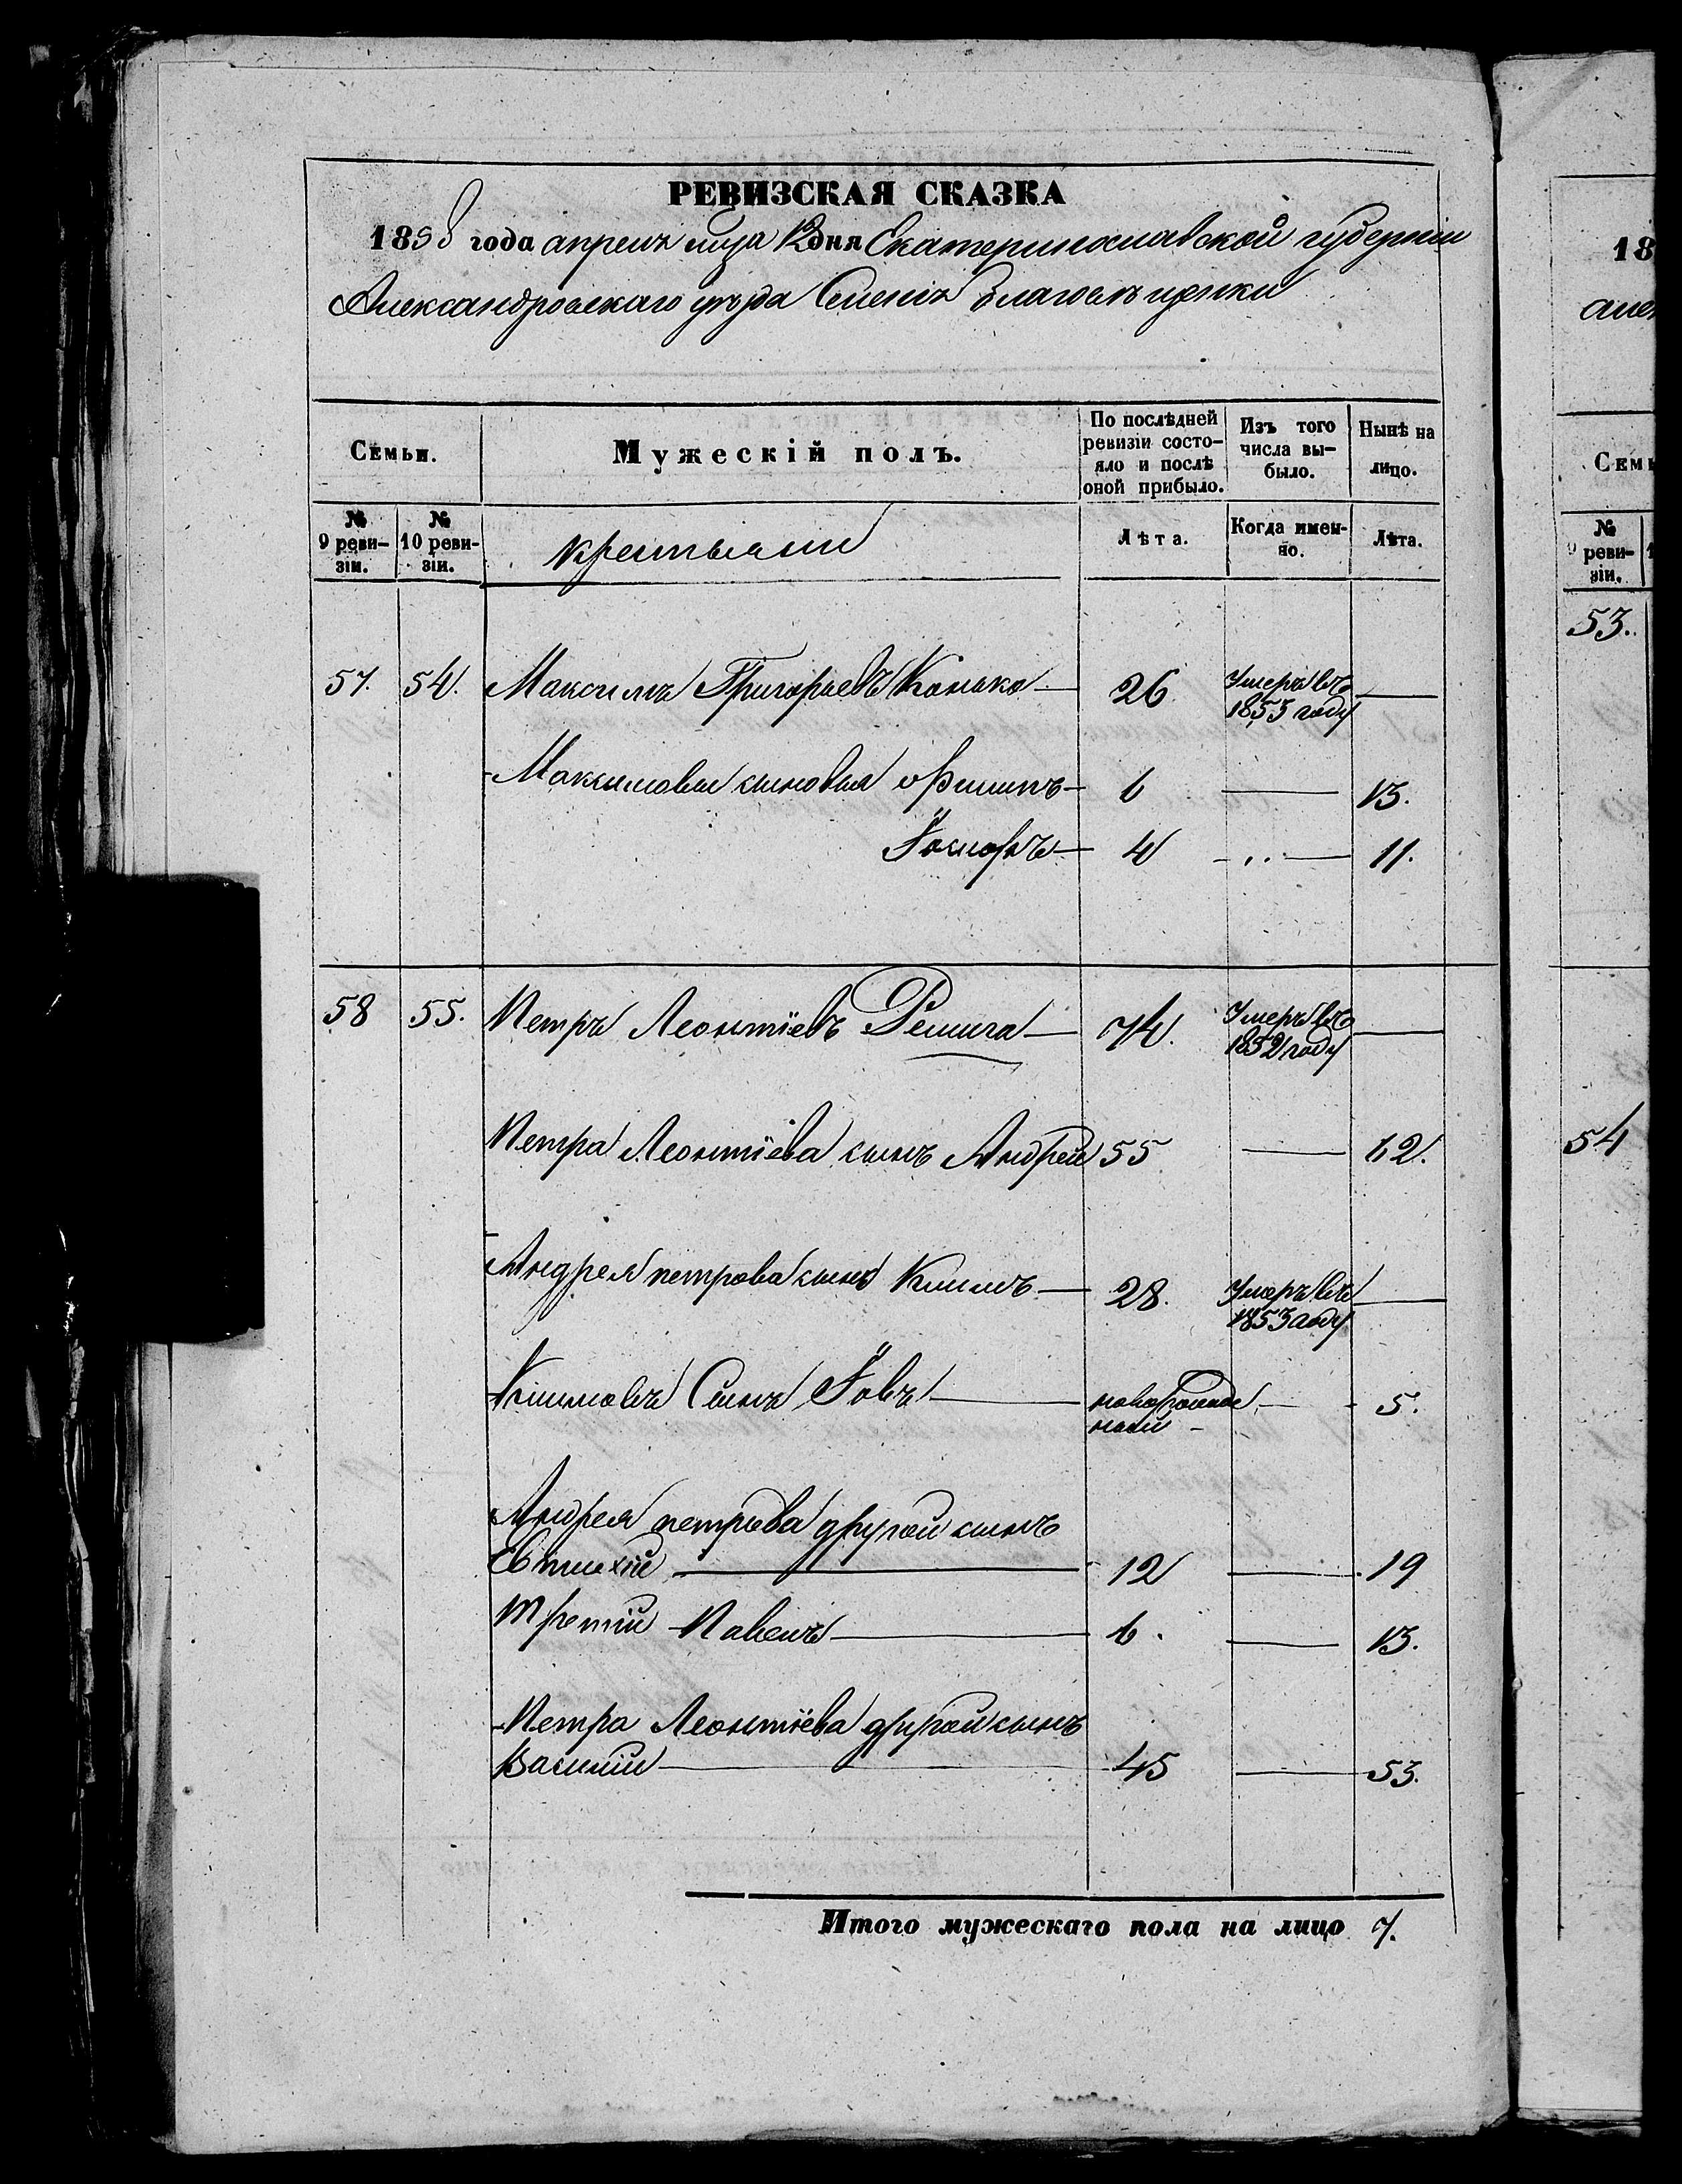 РЕВИЗСКАЯ СКАЗКА
1858 года апреля мца 12 дня Екатеринославской губернии
Александровскаго уѣзда
Семьи. Мужескій полъ. По послѣдней ревизіи состояло и послѣ оной прибыло. Изъ того числа выбыло. Нынѣ на лицо.
№ 9 ревизіи. № 10 ревизіи. крестьяни Лѣта. Когда именно. Лѣта.
57. 54. Максимъ Григорьевъ Конько — 26 Умеръ въ 1853 году —
Максимовы сыновья Филипъ — 6 — 13.
4 — 11.
58 55. Петръ Леонтіевъ Решига — 74. Умеръ въ 1852 году —
Петра Леонтіева сынъ Андрей 55 — 62.
Андрея петрова сынъ Климъ — 28. Умеръ въ 1853 году —
Климовъ Сынъ Іовъ — новорожденный — 5.
Андрея петрова другой сынъ
Евтихій — 12 — 19
третій Павелъ — 6. — 13.
Петра Леонтіева другой сынъ
Василий — 45 — 53.
Итого мужескаго пола на лицо 7.
18
Семь
№ 9 ревизіи.
53.
54